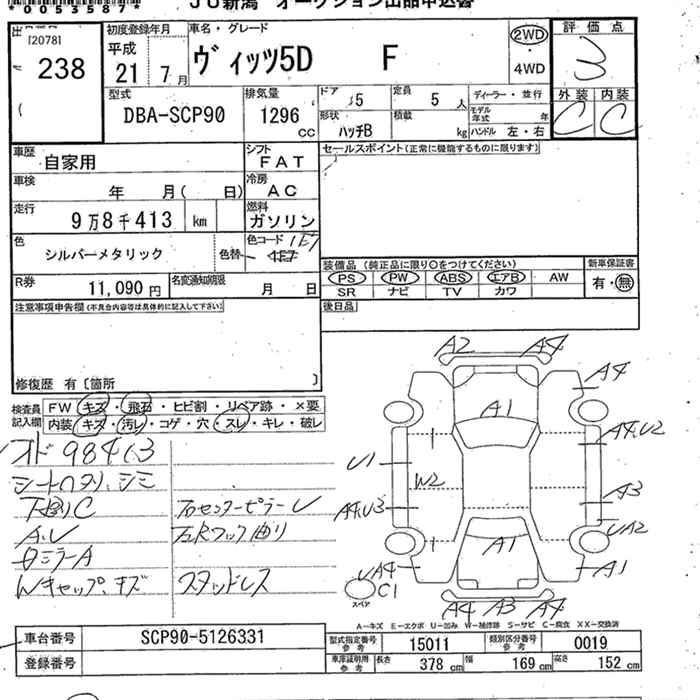 *0053587*　JU新潟　オークション出品申込書
[2078]
238
初度登録年月
平成
21 7月
車名・グレード
ヴィッツ5D　F
2WD・4WD
評価点
3
型式
DBA-SCP90
排気量
1296 CC
ドア 5
定員 5人
形状 ハッチB
積載 kg
ディーラー・並行
モデル年式 年
ハンドル 左・右
外装 C
内装 C
車歴 自家用
シフト FAT
セールスポイント(正常に機能するものに限ります)
車検 年 月( 日)
冷房 AC
走行 9万8千413 km
燃料 ガソリン
色 シルバーメタリック
色替
色コード 1E7
R券 11,090円
名変通知期限 月 日
装備品（純正品に限り○をつけてください）
PS PW ABS エアB AW
SR ナビ TV カワ
新車保証書
有・無
注意事項申告欄(不具合内容等は具体的に記入して下さい)
後日品
修復歴 有〔箇所 〕
検査員記入欄
FW キズ・飛石・ヒビ割・リペア跡・×要
内装 キズ・汚レ・コゲ・穴・スレ・キレ・破レ
オド 98413
シートヘタリ、シミ
下廻りC
A.U
右センターピラーU
ミラーA
Wキャップ、キズ
スタッドレス
A2 A4
A4
A1
A4,U2
U1
W2
A3
A4,U3
UA2
A1
UA4
A1
C1
スペア
A4 A3 A4
A―キズ E―エクボ U―凹み W―補修跡 S―サビ C―腐食 XX―交換済
車台番号 SCP90-5126331
登録番号
型式指定番号 参考 15011
類別区分番号 参考 0019
車庫証明用 参考 長さ 378 cm 幅 169 cm 高さ 152 cm